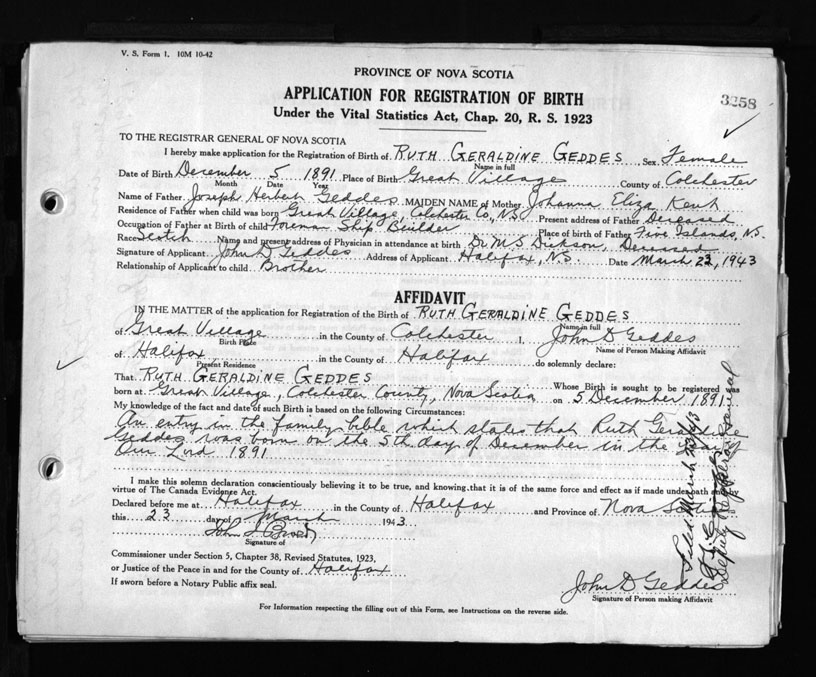 V. S. Form 1. 10M 10-42
PROVINCE OF NOVA SCOTIA
APPLICATION FOR REGISTRATION OF BIRTH
3258
Under the Vital Statistics Act, Chap. 20, R. S. 1923
TO THE REGISTRAR GENERAL OF NOVA SCOTIA
I hereby make application for the Registration of Birth of RUTH GERALDINE GEDDES Sex Female
Name in full
Date of Birth December 5 1891 Place of Birth Great Village County of Colchester
Month Date Year
Name of Father Joseph Herbert Geddes MAIDEN NAME of Mother Johanna Eliza Kent
Residence of Father when child was born Great Village, Colchester Co., N.S. Present address of Father Deceased
Occupation of Father at Birth of child Foreman Ship Builder Place of birth of Father Five Islands, N.S.
Race Scotch Name and present address of Physician in attendance at birth Dr M S Dickson, Deceased
Signature of Applicant John D Geddes Address of Applicant Halifax, N.S. Date March 23, 1943
Relationship of Applicant to child Brother
AFFIDAVIT
IN THE MATTER of the application for Registration of the Birth of RUTH GERALDINE GEDDES
Name in full
of Great Village in the County of Colchester I, John D Geddes
Birth Place
Name of Person Making Affidavit
of Halifax in the County of Halifax do solemnly declare:
Present Residence
That RUTH GERALDINE GEDDES Whose Birth is sought to be registered was
born at Great Village, Colchester County, Nova Scotia on 5 December 1891
My knowledge of the fact and date of such Birth is based on the following Circumstances:
An entry in the family bible which states that Ruth Geraldine
Geddes was born on the 5th day of December in the year of
Our Lord 1891
I make this solemn declaration conscientiously believing it to be true, and knowing that it is of the same force and effect as if made under oath and by
virtue of The Canada Evidence Act.
Declared before me at Halifax in the County of Halifax and Province of Nova Scotia
this 23 day of March 1943
John J.
Signature of
Commissioner under Section 5, Chapter 38, Revised Statutes, 1923,
or Justice of the Peace in and for the County of Halifax
If sworn before a Notary Public affix seal.
John D Geddes
Signature of Person making Affidavit
For Information respecting the filling out of this Form, see Instructions on the reverse side.
Filed March 23/1943
Deputy Registrar General